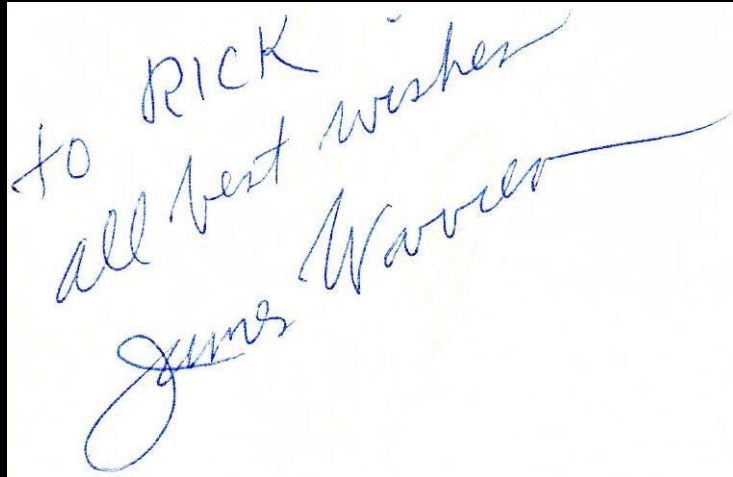 to RICK
all best wishes
James Warren